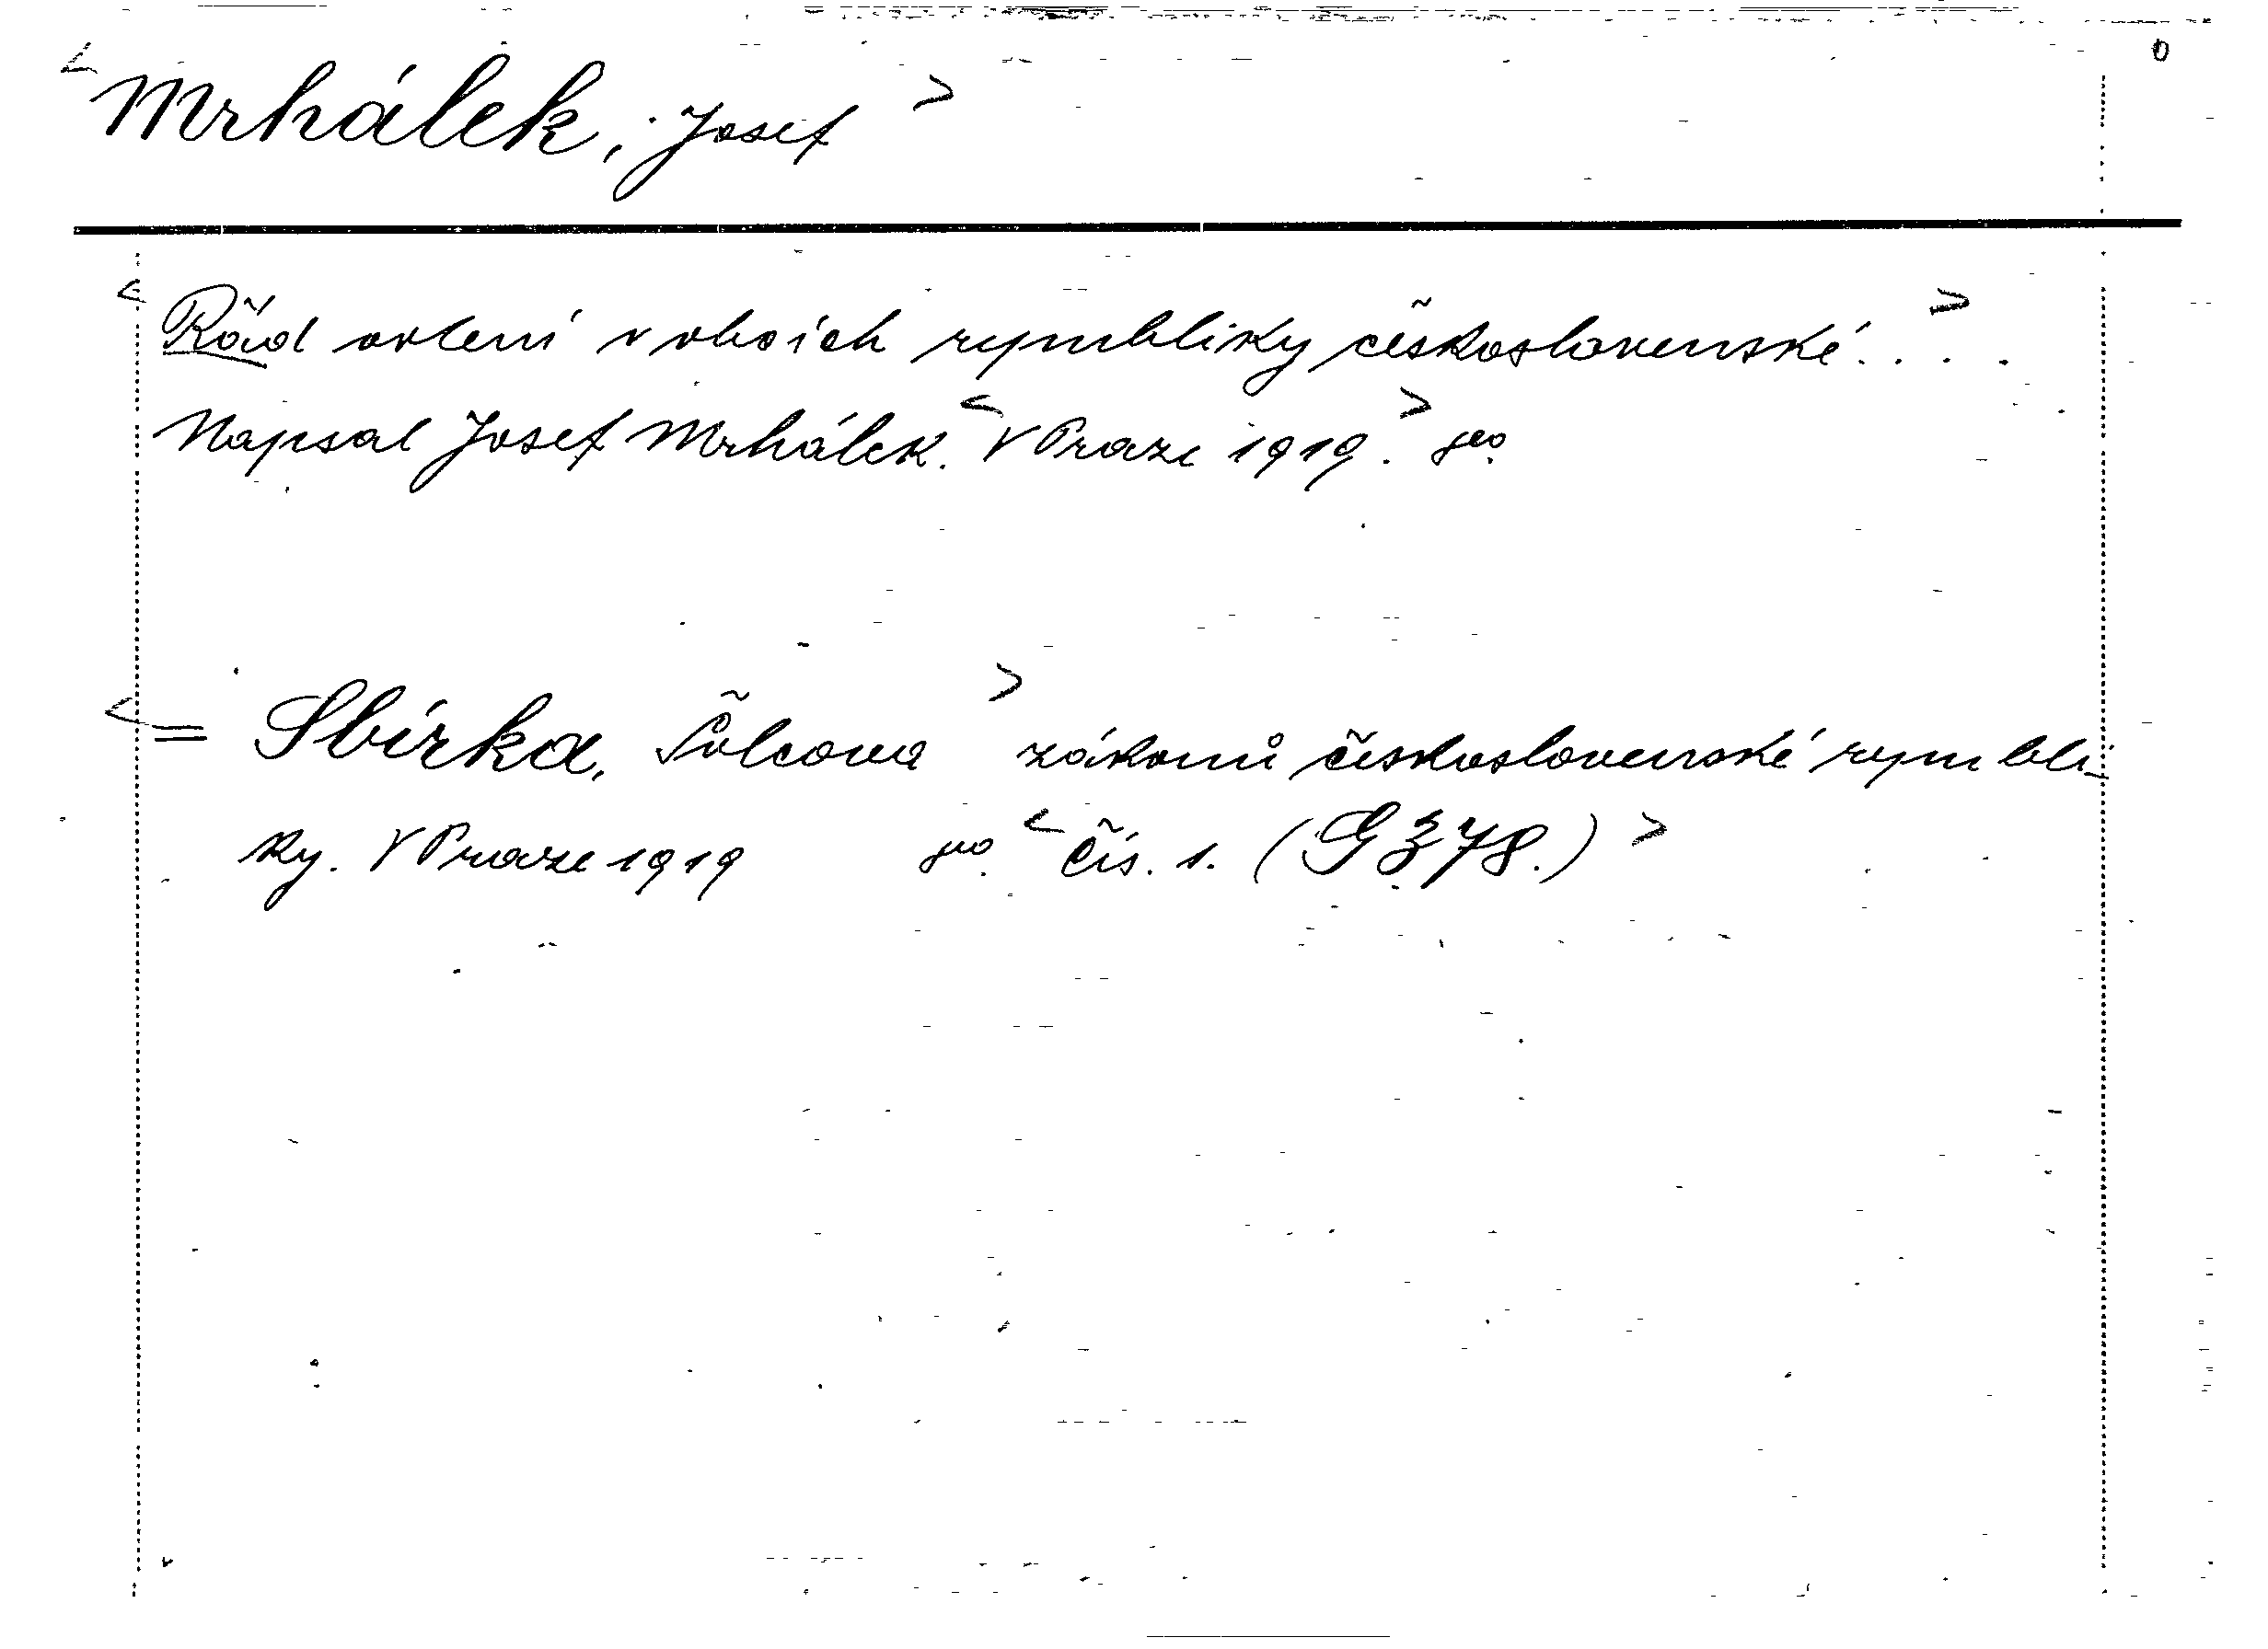 0
<Mrhálek, Josef>
<Řád volení v obcích republiky československé. . . .>
Napsal Josef Mrhálek. <V Praze 1919.> 8º.
<= Sbírka, Šolcova> zákonů československé republi-
ky. V Praze 1919 8º. <Čís. 1. (G 378.)>